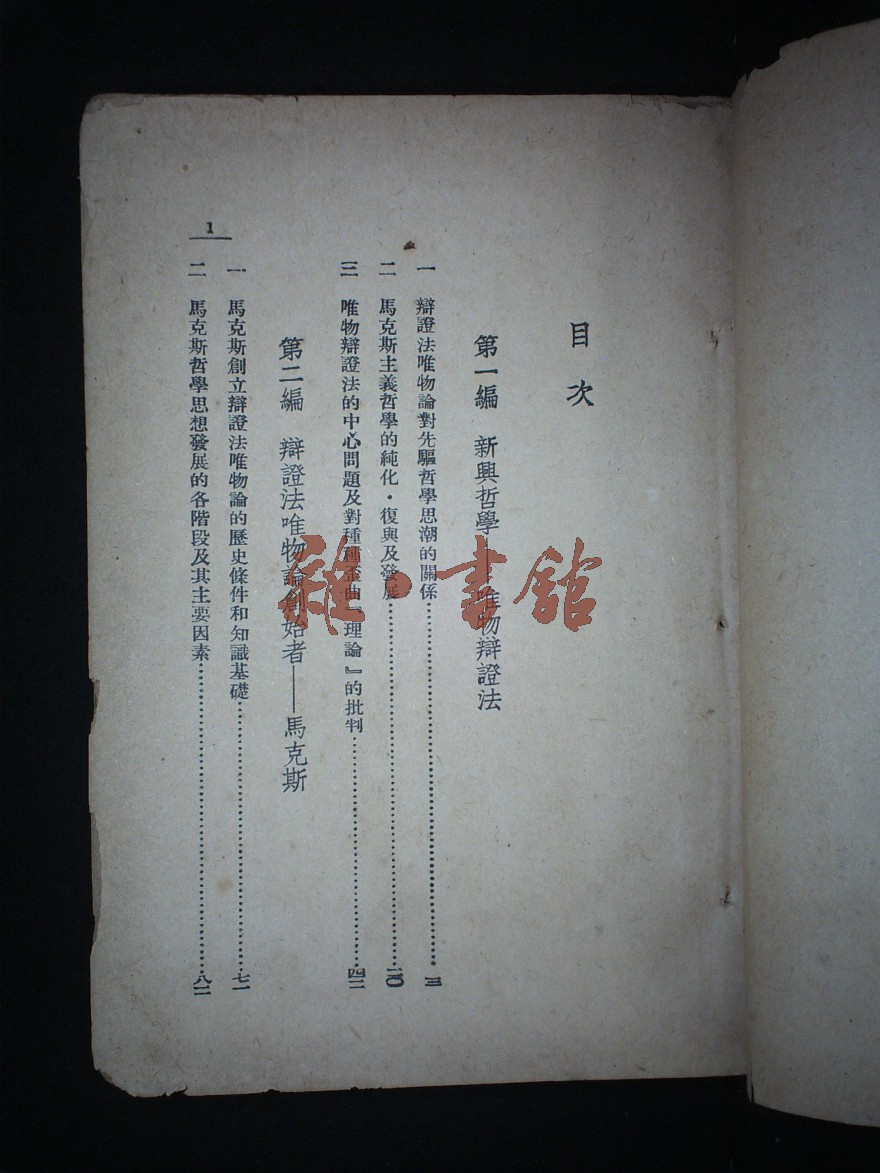 目次
第一編 新興哲學——唯物辯證法
一 辯證法唯物論對先驅哲學思潮的關係……三
二 馬克斯主義哲學的純化・復興及發展……二〇
三 唯物辯證法的中心問題及對種種歪曲『理論』的批判……四二
第二編 辯證法唯物論創始者——馬克斯
一 馬克斯創立辯證法唯物論的歷史條件和知識基礎……七一
二 馬克斯哲學思想發展的各階段及其主要因素……八二
1
雜・書館